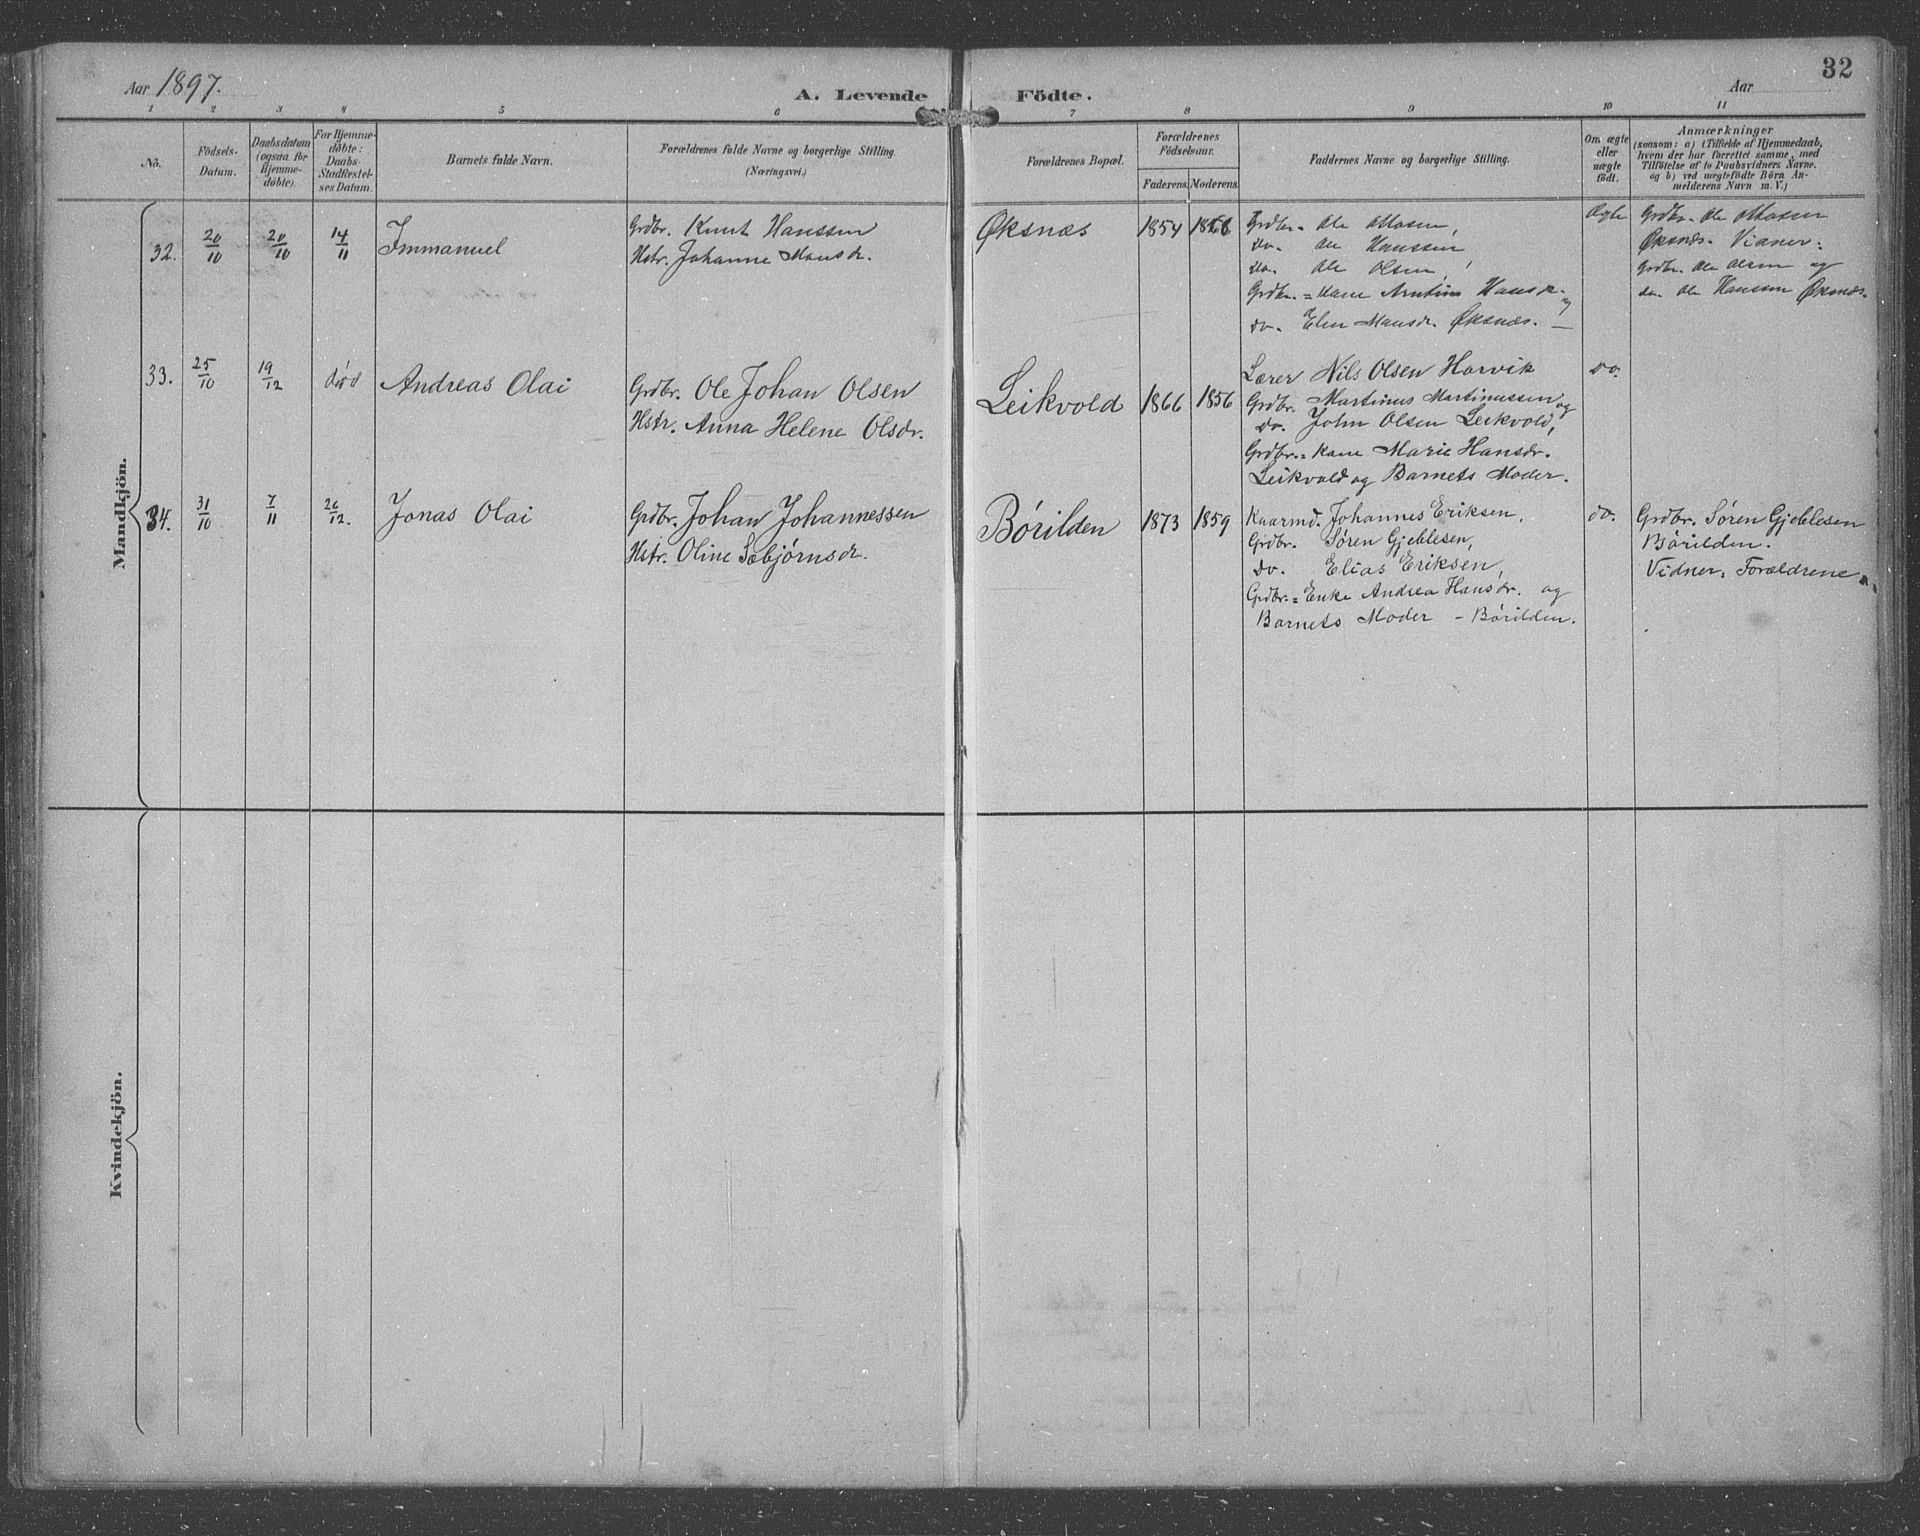 Aar 1897.
A. Levende Födte.
Aar
32
1 2 3 4 5 6 7 8 9 10 11
No.
Födsels-Datum.
Daabsdatum (ogsaa for Hjemme-döbte).
For Hjemme-döbte: Daabs-Stadfæstel-ses Datum.
Barnets fulde Navn.
Forældrenes fulde Navne og borgerlige Stilling.
(Næringsvei.)
Forældrenes Bopæl.
Forældrenes Födselsaar.
Faderens. Moderens.
Faddernes Navne og borgerlige Stilling.
Om ægte eller uægte födt.
Anmærkninger
(saasom: a) i Tilfælde af Hjemmedaab,
hvem der har forrettet samme, med
Tilföielse af to Daabsvidners Navne.
og b) ved uægtefödte Börn An-
melderens Navn m. V.)
Mandkjön.
32. 20/10 20/10 14/11 Immanuel
Grdbr. Knut Hanssen
Hstr. Johanne Monsdr.
Øksnæs 1854
Grdbr. Ole Ottosen,
do. Ole Hanssen
do. Ole Olsen,
Grdbr.= kone Hansdr. og
do. Elen Monsdr. Øksnæs. —
Ægte
Grdbr. Ole Ottosen
Øksnæs. Vidner:
Grdbr. Ole Olsen og
do. Ole Hanssen Øksnæs.
33. 25/10 19/12 død Andreas Olai
Grdbr. Ole Johan Olsen
Hstr. Anna Helene Olsdr.
Leikvold 1866 1856
Lærer Nils Olsen Horvik
Grdbr. Martinus Martinussen og
do. John Olsen Leikvold,
Grdbr.= kone Marie Hansdr.
Leikvold og Barnets Moder.
do.
34. 31/10 7/11 26/12. Jonas Olai
Grdbr. Johan Johannessen
Hstr. Oline Sæbjørnsdr.
Børilden 1873 1859
Kaarmd. Johannes Eriksen,
Grdbr. Søren Gjeblesen,
do. Elias Eriksen,
Grdbr.= Enke Andrea Hansdr. og
Barnets Moder – Børilden.
do.
Grdbr. Søren Gjeblesen
Børilden.
Vidner: Forældrene.
Kvindekjön.